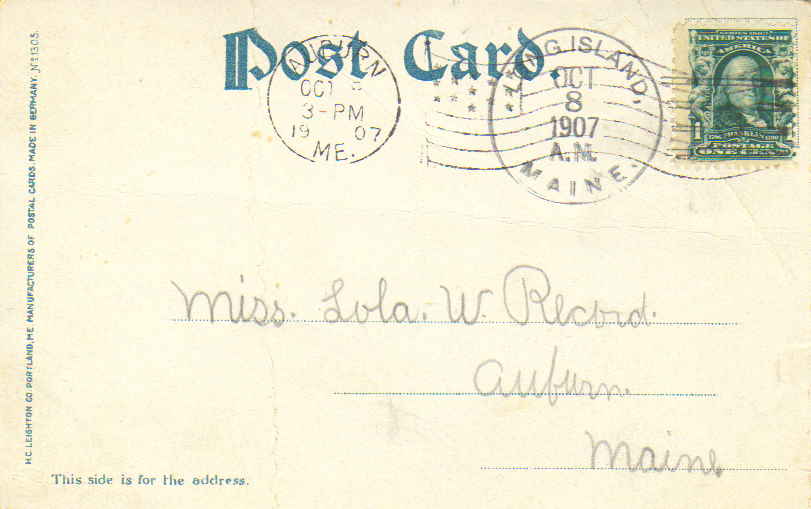 Post Card.
AUBURN
OCT
3-PM
19 07
ME.
LONG ISLAND,
OCT
8
1907
A.M.
MAINE.
SERIES 1902
UNITED STATES OF
AMERICA
1
FRANKLIN
POSTAGE
ONE CENT
Miss. Lola. W. Record.
Auburn.
Maine
This side is for the address.
H.C. LEIGHTON CO. PORTLAND, ME. MANUFACTURERS OF POSTAL CARDS. MADE IN GERMANY. No 1305.